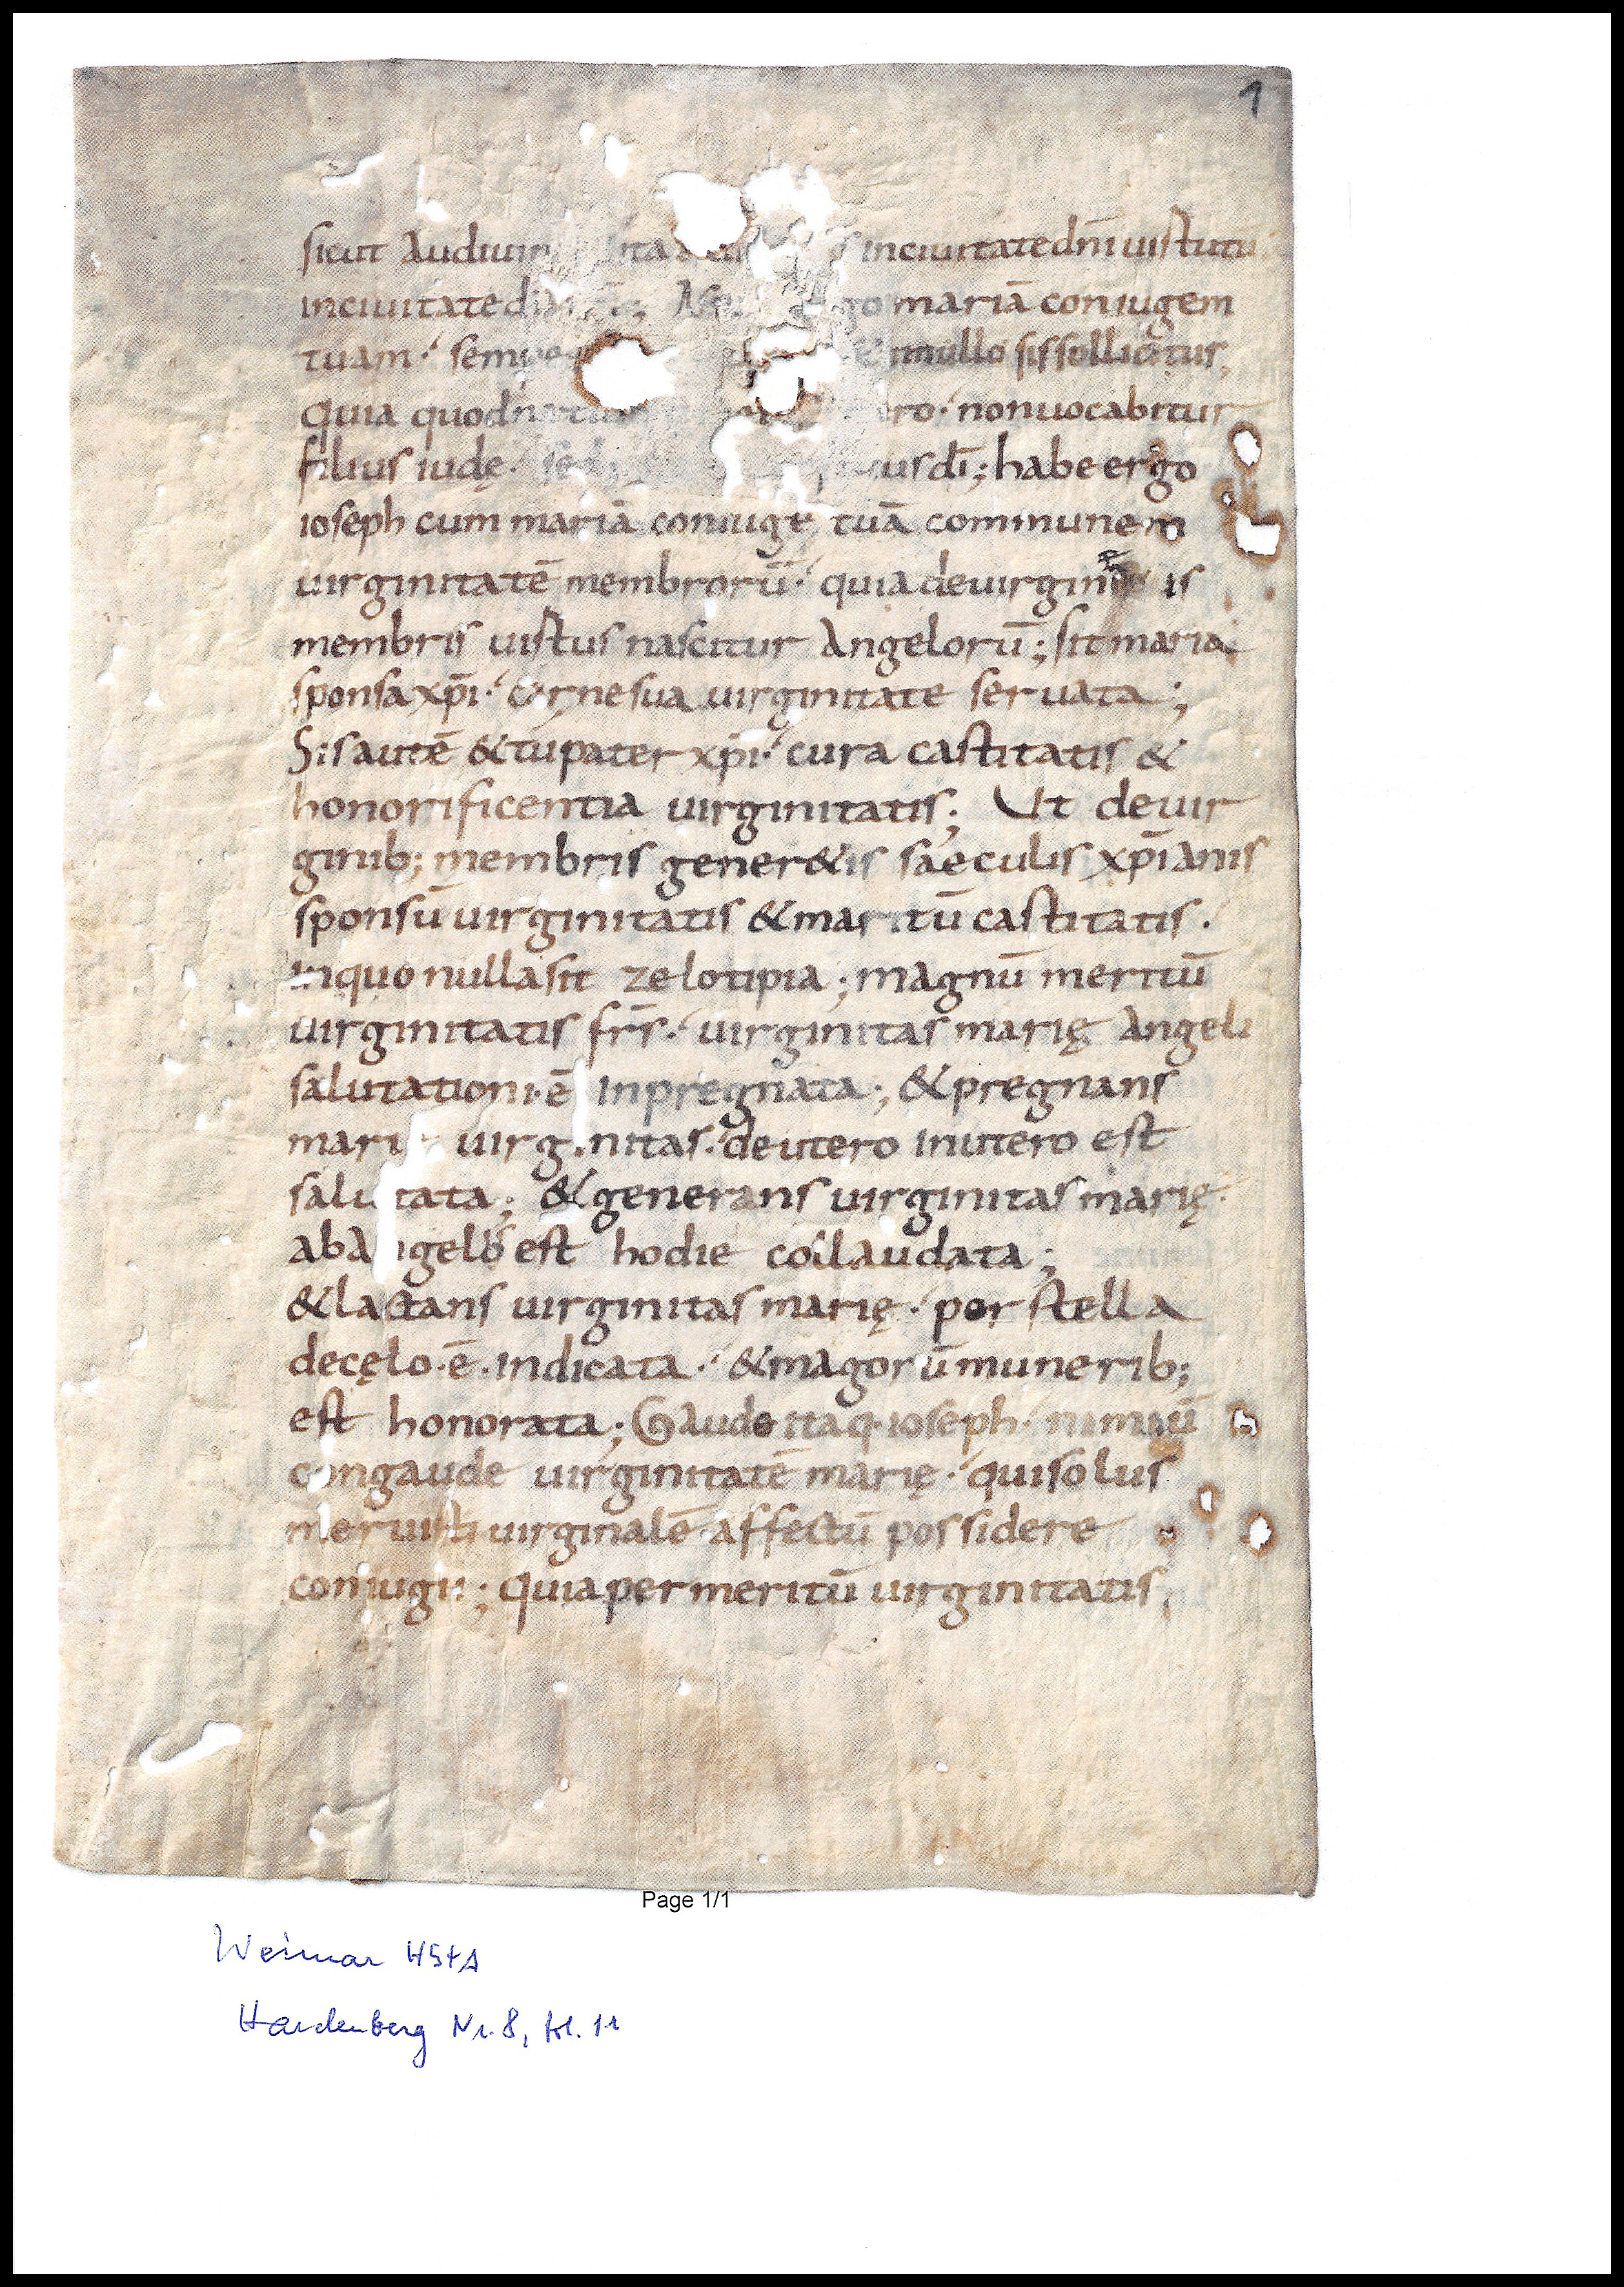 1
sicut audiuim ita inciuitate dn̄i uirtutū
inciuitate di Ne go mariā coniugem
tuam· sempe & innullo sis sollicitus,
Quia quod ro· nonuocabitur
filius iudę· sed ius dī; habe ergo
ioseph cum mariā coniugē tuā communem
uirginitatē membrorū· quia deuirgineis
membris uirtus nascitur Angelorū; sit maria
sponsa xp̄i· carne sua uirginitate seruata;
Sis autē & tu pater xp̄i· cura castitatis &
honorificentia uirginitatis; Ut deuir
ginib; membris gener&is saeculis xp̄ianis
sponsū uirginitatis & maritū castitatis·
inquo nulla sit zelotipia; magnū meritū
uirginitatis fr̄s· uirginitas marię Angeli
salutationi·ē inpregnata; & pregnans
mari uirginitas· de utero inutero est
salutata; & generans uirginitas marię·
ab angelo est hodie collaudata;
& lactans uirginitas marię· per stella
decęlo·ē·indicata· & magorū munerib;
est honorata; Gaude itaq· ioseph· nimiū
congaude uirginitatē marię· qui solus
meruisti uirginalē affectū possidere
coniugii; Quia per meritū uirginitatis,
Page 1/1
Weimar HStA
Hardenberg Nr. 8, fol. 1r